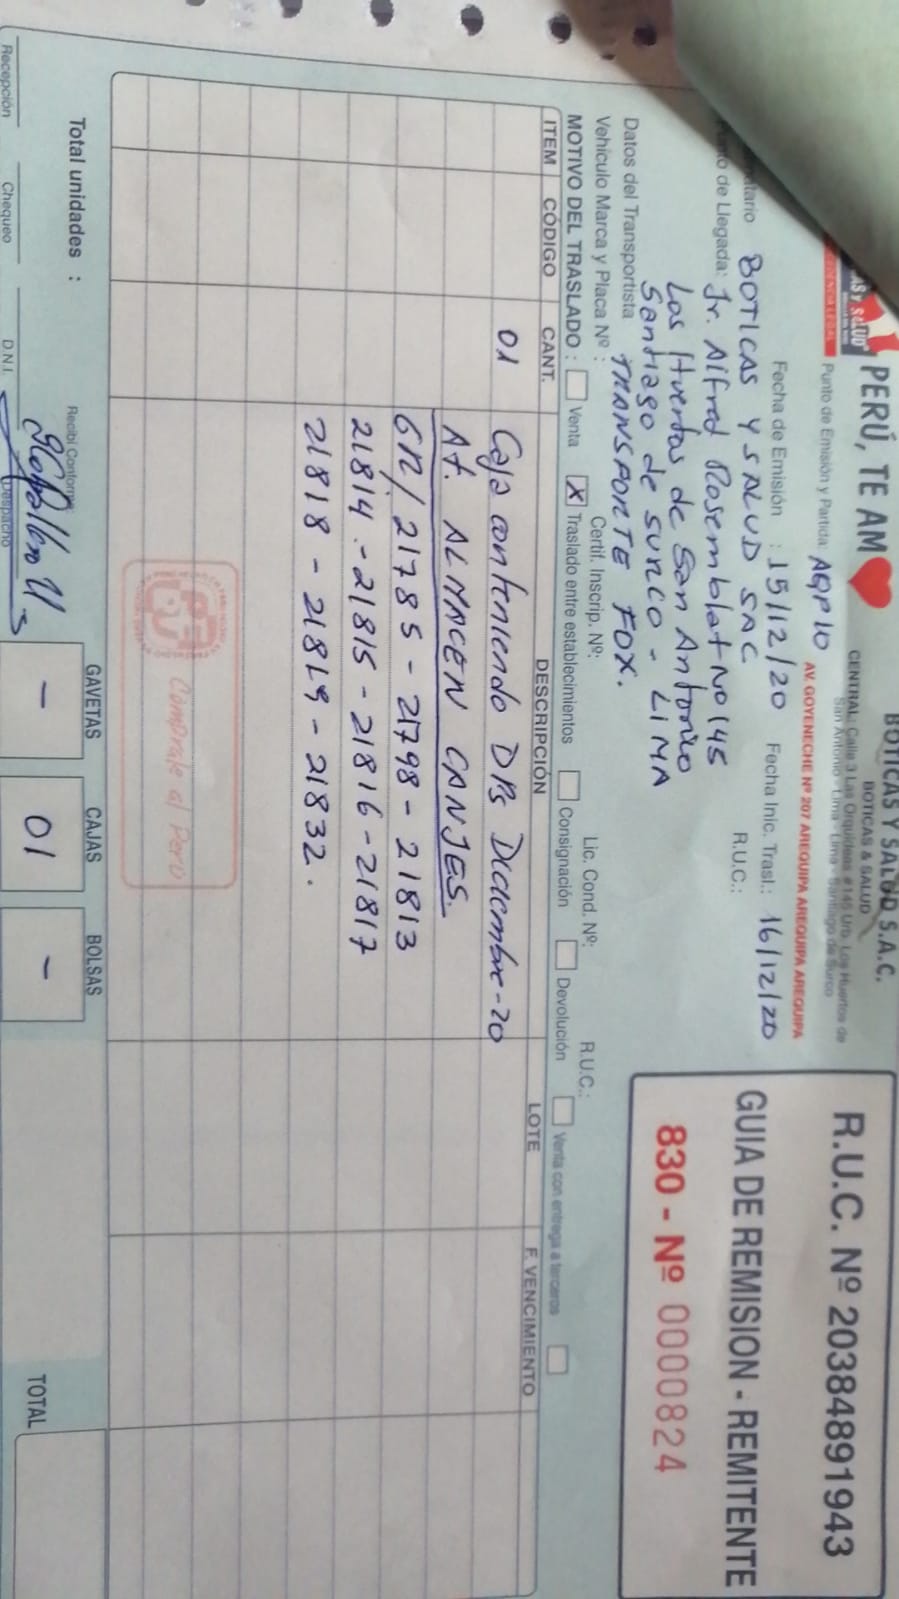 BOTICAS Y SALUD S.A.C.
BOTICAS & SALUD
PERÚ, TE AM
CENTRAL: Calle 3 Las Orquídeas #145 Urb. Los Huertos de
San Antonio - Lima - Lima - Santiago de Surco
Punto de Emisión y Partida: AQP10
AV. GOYENECHE Nº 207 AREQUIPA AREQUIPA AREQUIPA
Fecha de Emisión : 15/12/20 Fecha Inic. Trasl.: 16/12/20
BOTICAS Y SALUD SAC R.U.C.:
de Llegada: Jr. Alfred Rosemblat No 145
Los Huertos de San Antonio
Santiago de Surco - LIMA
Datos del Transportista TRANSPORTE FOX.
Vehículo Marca y Placa Nº : Certif. Inscrip. Nº: Lic. Cond. Nº: R.U.C.:
R.U.C. Nº 20384891943
GUIA DE REMISION - REMITENTE
830 - Nº 0000824
MOTIVO DEL TRASLADO : Venta X Traslado entre establecimientos Consignación Devolución Venta con entrega a terceros
ITEM CÓDIGO CANT. DESCRIPCIÓN LOTE F. VENCIMIENTO
01 Caja conteniendo DPs Diciembre-20
At. ALMACEN CANJES.
GR/21785-21798-21813
21814-21815-21816-21817
21818-21819-21832.
Cómprale al Perú
Total unidades :
Recibí Conforme:
GAVETAS CAJAS BOLSAS
- 01 -
TOTAL
Recepción Chequeo D.N.I. Despacho